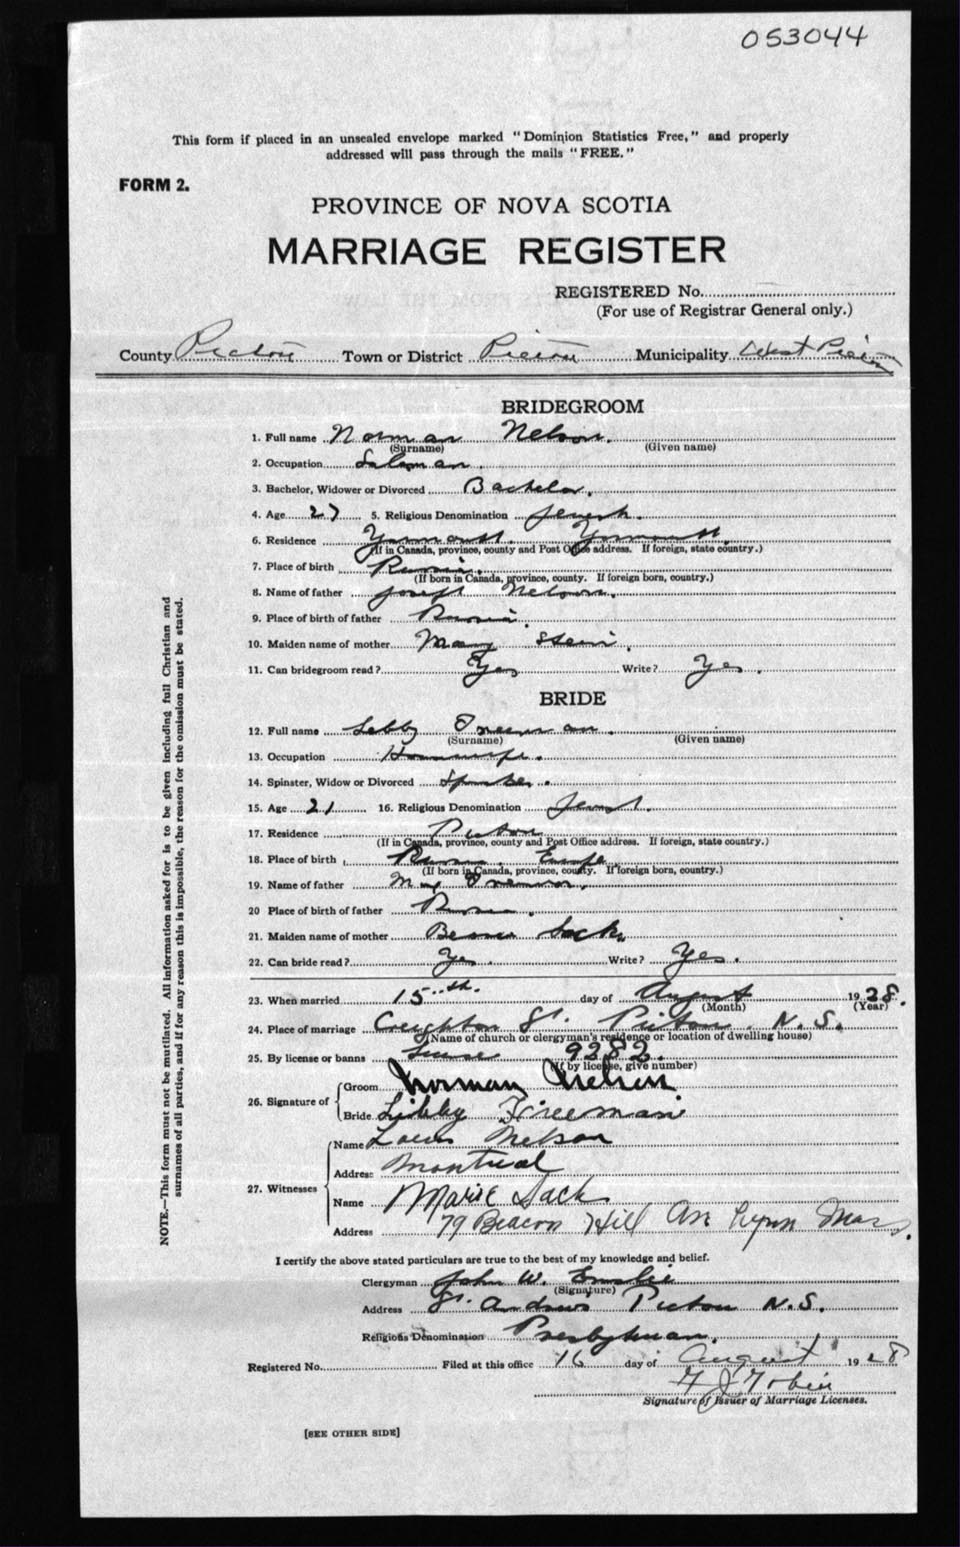 053044
This form if placed in an unsealed envelope marked "Dominion Statistics Free," and properly
addressed will pass through the mails "FREE."
FORM 2.
PROVINCE OF NOVA SCOTIA
MARRIAGE REGISTER
REGISTERED No.
(For use of Registrar General only.)
County Pictou Town or District Pictou Municipality West Pictou
BRIDEGROOM
1. Full name Norman Nelson.
(Surname) (Given name)
2. Occupation Salesman.
3. Bachelor, Widower or Divorced Bachelor.
4. Age 27 5. Religious Denomination Jewish.
6. Residence Yarmouth. Yarmouth.
(If in Canada, province, county and Post Office address. If foreign, state country.)
7. Place of birth Russia.
(If born in Canada, province, county. If foreign born, country.)
8. Name of father Joseph Nelson.
9. Place of birth of father Russia.
10. Maiden name of mother Mary
11. Can bridegroom read? Yes Write? Yes.
BRIDE
12. Full name Libby Freeman.
(Surname) (Given name)
13. Occupation Housewife.
14. Spinster, Widow or Divorced Spinster.
15. Age 21 16. Religious Denomination Jewish.
17. Residence Pictou
(If in Canada, province, county and Post Office address. If foreign, state country.)
18. Place of birth Russia. Europe
(If born in Canada, province, county. If foreign born, country.)
19. Name of father Freeman.
20 Place of birth of father Russia.
21. Maiden name of mother Sack.
22. Can bride read? Yes. Write? Yes.
23. When married 15th. day of August 1928.
(Month) (Year)
24. Place of marriage Creighton St. Pictou. N.S.
(Name of church or clergyman's residence or location of dwelling house)
25. By license or banns License 9282.
(If by license, give number)
26. Signature of Groom Norman Nelson
Bride Libby Freeman
27. Witnesses Name Louis Nelson
Address Montreal
Name Marie Sack
Address 79 Beacon Hill Av Lynn Mass.
I certify the above stated particulars are true to the best of my knowledge and belief.
Clergyman John W.
(Signature)
Address St. Andrews Pictou N.S.
Religious Denomination Presbyterian.
Registered No. Filed at this office 16 day of August 1928
F J Tobin
Signature of Issuer of Marriage Licenses.
[SEE OTHER SIDE]
NOTE.—This form must not be mutilated. All information asked for is to be given including full Christian and
surnames of all parties, and if for any reason this is impossible, the reason for the omission must be stated.